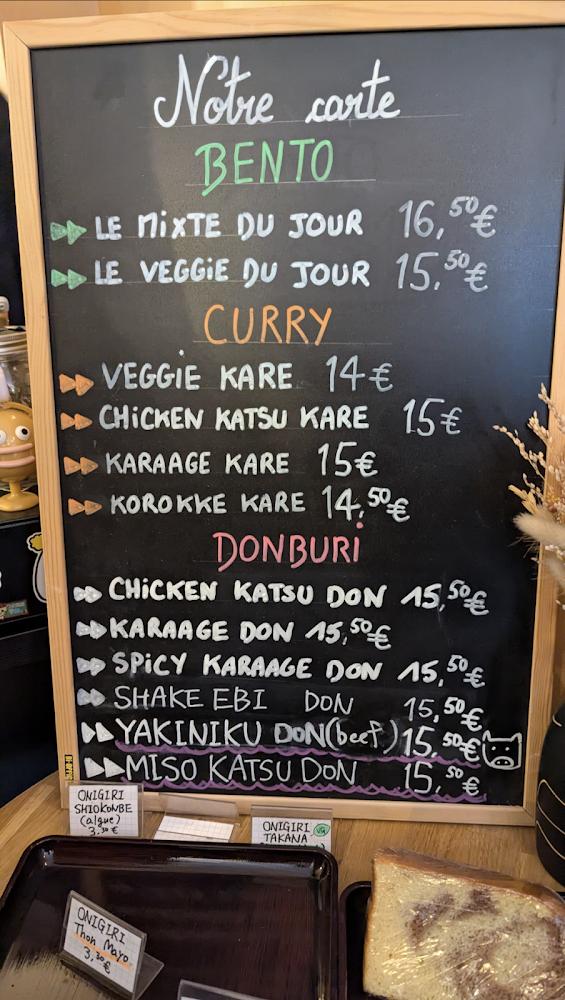 Notre carte
BENTO
LE MIXTE DU JOUR 16,50€
LE VEGGIE DU JOUR 15.50€
CURRY
VEGGIE KARE 14€
CHICKEN KATSU KARE 15€
KARAAGE KARE 15€
KOROKKE KARE 14,50€
DONBURI
CHICKEN KATSU DON 15,50€
KARAAGE DON 15,50€
SPICY KARAAGE DON 15,50€
SHAKE EBI DON 15,50€
YAKINIKU DON(beef) 15,50€
MISO KATSU DON 15,50€
ONIGIRI
SHIOKONBE
(algue)
3,30€
ONIGIRI
TAKANA
ONIGIRI
Thon Mayo
3,30€